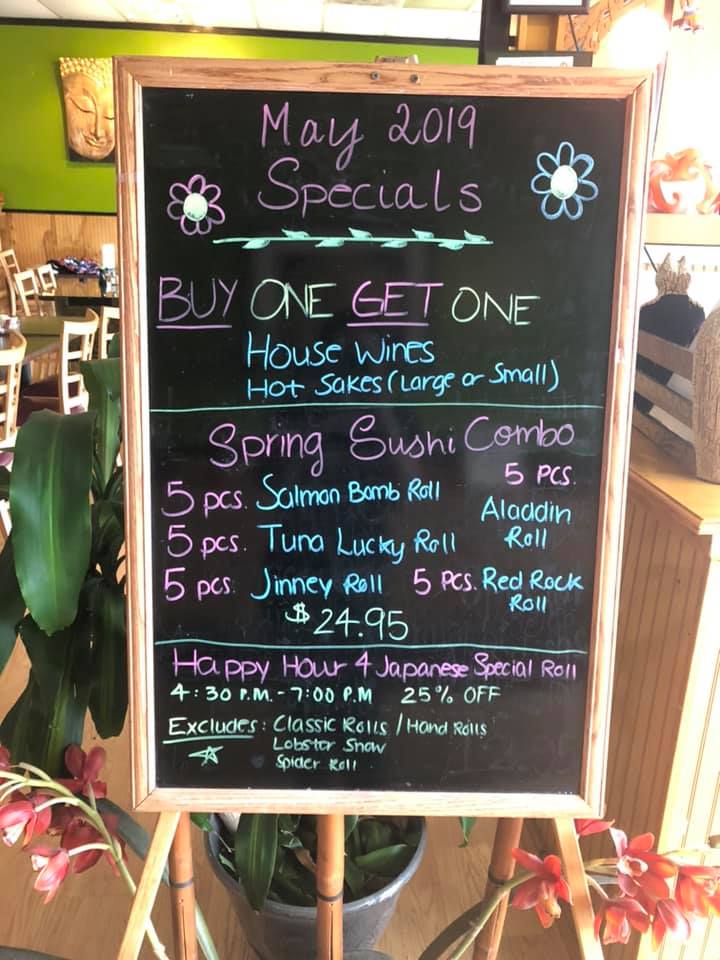 May 2019
Specials
BUY ONE GET ONE
House Wines
Hot Sakes (Large or Small)
Spring Sushi Combo
5 pcs. Salmon Bomb Roll
5 pcs. Tuna Lucky Roll
5 pcs. Jinney Roll
5 PCS. Aladdin
Roll
5 PCS. Red Rock
Roll
$24.95
Happy Hour 4 Japanese Special Roll
4:30 P.M. - 7:00 P.M 25% OFF
Excludes: Classic Rolls / Hand Rolls
Lobster Snow
Spider Roll